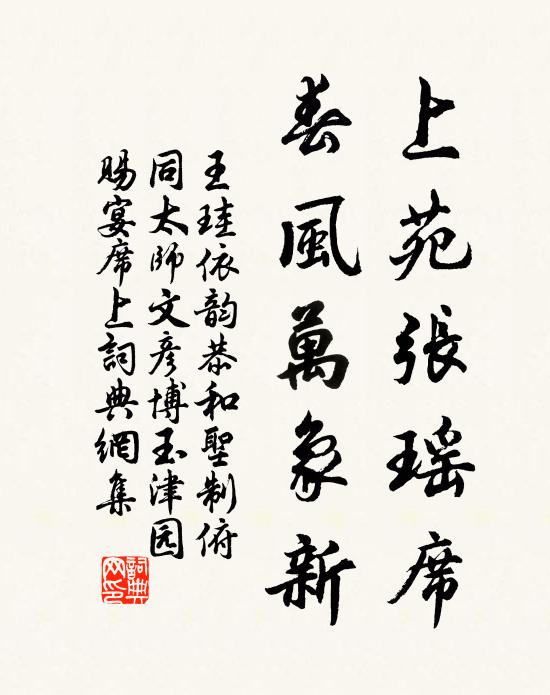 上苑張瑶席
春風萬象新
王珪依韵恭和聖制俯
同太師文彦博玉津园
賜宴席上詞典網集
詞典
网印